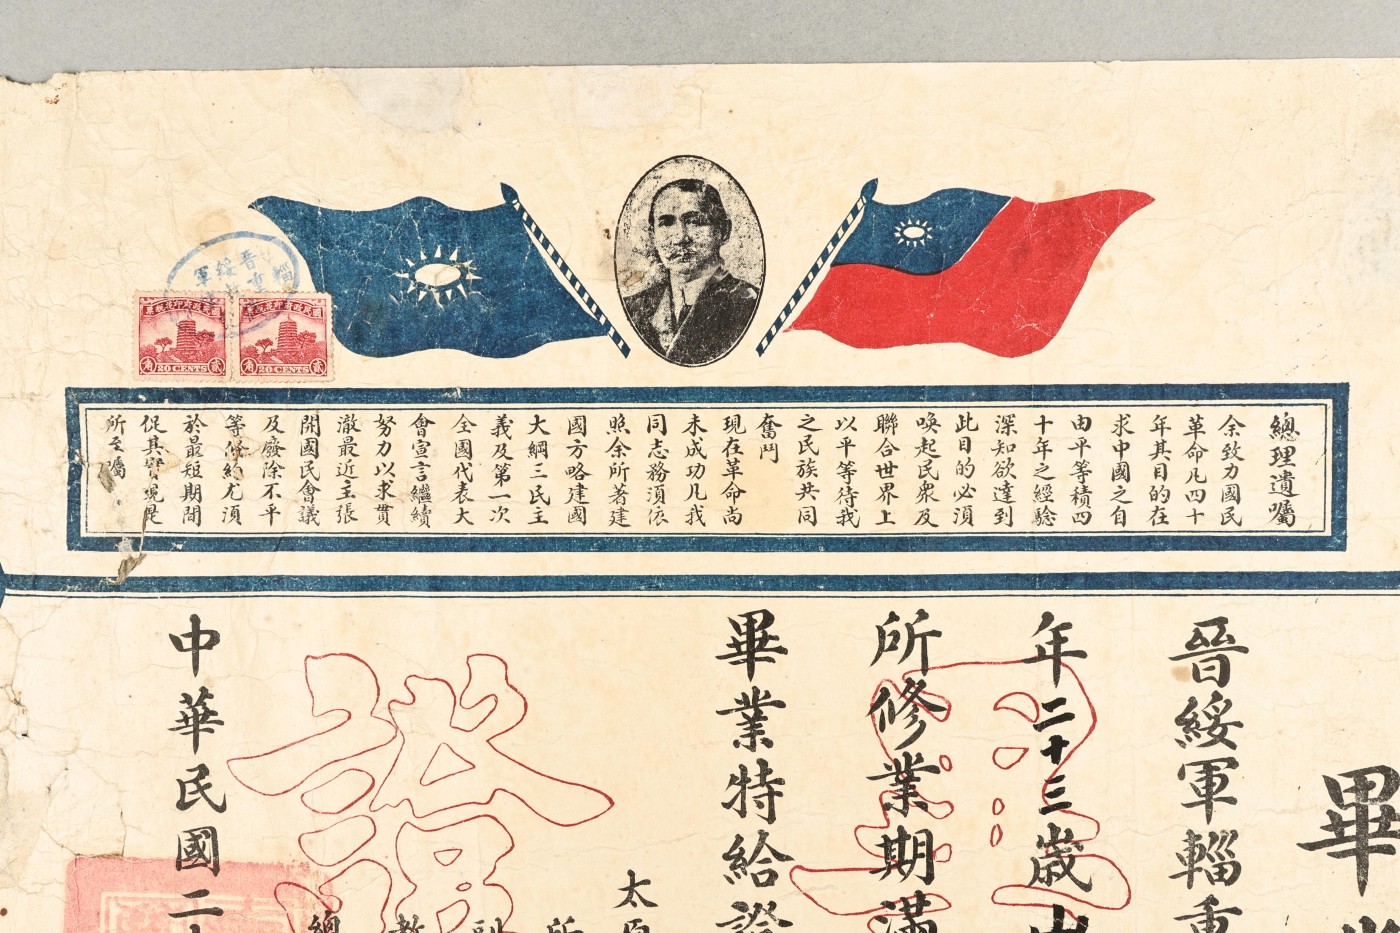 國民政府印花稅票
貳角
20 CENTS
國民政府印花稅票
貳角
20 CENTS
總理遺囑
余致力國民
革命凡四十
年其目的在
求中國之自
由平等積四
十年之經騐
深知欲達到
此目的必須
喚起民衆及
聯合世界上
以平等待我
之民族共同
奮鬥
現在革命尚
未成功凡我
同志務須依
照余所著建
國方略建國
大綱三民主
義及第一次
全國代表大
會宣言繼續
努力以求貫
澈最近主張
開國民會議
及廢除不平
等條約尤須
於最短期間
促其實現是
所至囑
畢
晉綏軍輜重
年二十三歲山
所修業期滿
畢業特給證
太原
所
副
教
總
中華民國二
證